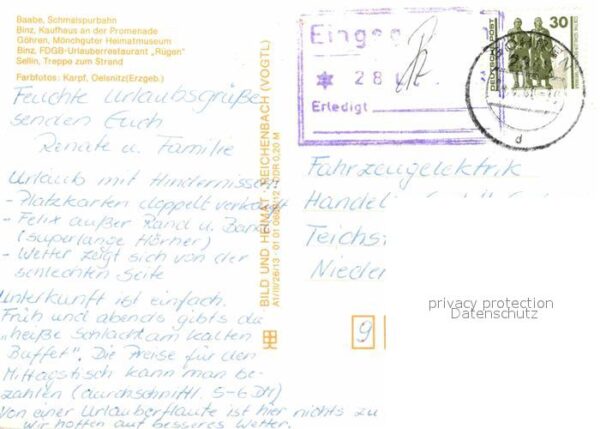 Baabe, Schmalspurbahn
Binz, Kaufhaus an der Promenade
Göhren, Mönchguter Heimatmuseum
Binz, FDGB-Urlauberrestaurant „Rügen"
Sellin, Treppe zum Strand
Farbfotos: Karpf, Oelsnitz(Erzgeb.)
Feuchte Urlaubsgrüße
senden Euch
Renate u. Familie
Urlaub mit Hindernissen:
- Platzkarten doppelt verkauft
- Felix außer Rand u. Band
(superlange Hörner)
- Wetter zeigt sich von der
schlechten Seite
Unterkunft ist einfach.
Früh und abends gibts die
„heiße Schlacht am kalten
Buffet". Die Preise für den
Mittagstisch kann man be-
zahlen (durchschnittl. 5-6 DM)
Von einer Urlauberflaute ist hier nichts zu
wir hoffen auf besseres Wetter.
BILD UND HEIMAT REICHENBACH (VOGTL)
A1/III/26/13 01 01
DDR 0,20 M
Einge
28
Erledigt
DEUTSCHE POST
30
d
Fahrzeugelektrik
Handel
Teichs
Nieder
9
privacy protection
Datenschutz